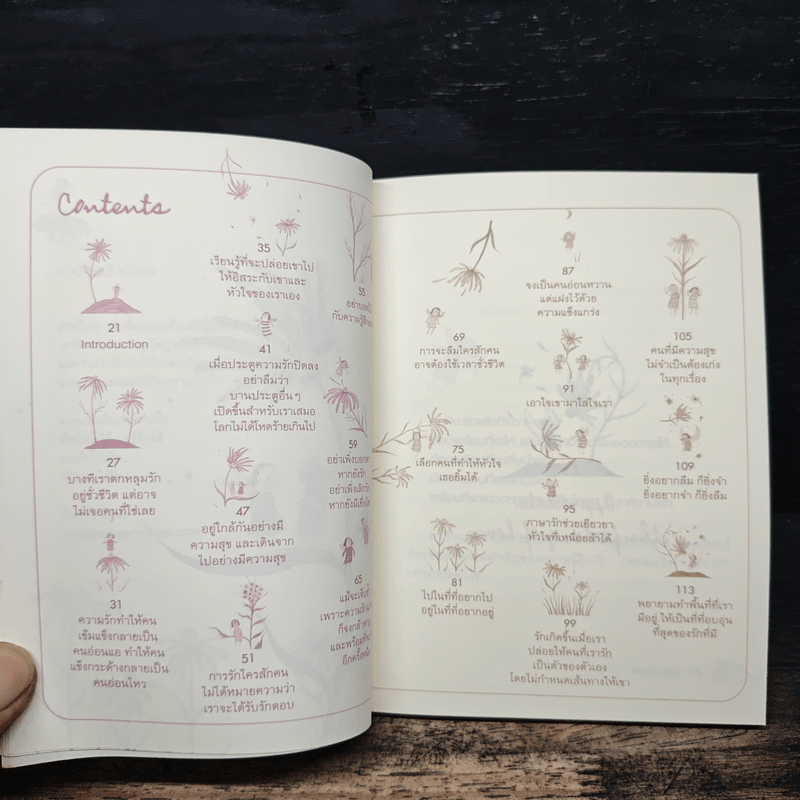 Contents
21
Introduction
27
บางทีเราตกหลุมรัก
อยู่ชั่วชีวิต แต่อาจ
ไม่เจอคนที่ใช่เลย
31
ความรักทำให้คน
เข้มแข็งกลายเป็น
คนอ่อนแอ ทำให้คน
แข็งกระด้างกลายเป็น
คนอ่อนไหว
35
เรียนรู้ที่จะปล่อยเขาไป
ให้อิสระกับเขาและ
หัวใจของเราเอง
41
เมื่อประตูความรักปิดลง
อย่าลืมว่า
บานประตูอื่นๆ
เปิดขึ้นสำหรับเราเสมอ
โลกไม่ได้โหดร้ายเกินไป
47
อยู่ใกล้กันอย่างมี
ความสุข และเดินจาก
ไปอย่างมีความสุข
51
การรักใครสักคน
ไม่ได้หมายความว่า
เราจะได้รับรักตอบ
55
กับความรู้สึก
59
อย่าเพิ่งบอก
หากยังรัก
อย่าเพิ่งเลิกรัก
หากยังมี
65
แม้จะเจ็บ
เพราะความรัก
ก็จงกล้า
และพร้อมที่จะ
อีกครั้ง
69
การจะลืมใครสักคน
อาจต้องใช้เวลาชั่วชีวิต
75
เลือกคนที่ทำให้หัวใจ
เธอยิ้มได้
81
ไปในที่ที่อยากไป
อยู่ในที่ที่อยากอยู่
87
จงเป็นคนอ่อนหวาน
แต่แฝงไว้ด้วย
ความแข็งแกร่ง
91
เอาใจเขามาใส่ใจเรา
95
ภาษารักช่วยเยียวยา
หัวใจที่เหนื่อยล้าได้
99
รักเกิดขึ้นเมื่อเรา
ปล่อยให้คนที่เรารัก
เป็นตัวของตัวเอง
โดยไม่กำหนดเส้นทางให้เขา
105
คนที่มีความสุข
ไม่จำเป็นต้องเก่ง
ในทุกเรื่อง
109
ยิ่งอยากลืม ก็ยิ่งจำ
ยิ่งอยากจำ ก็ยิ่งลืม
113
พยายามทำพื้นที่ที่เรา
มีอยู่ ให้เป็นที่ที่อบอุ่น
ที่สุดของรักที่มี